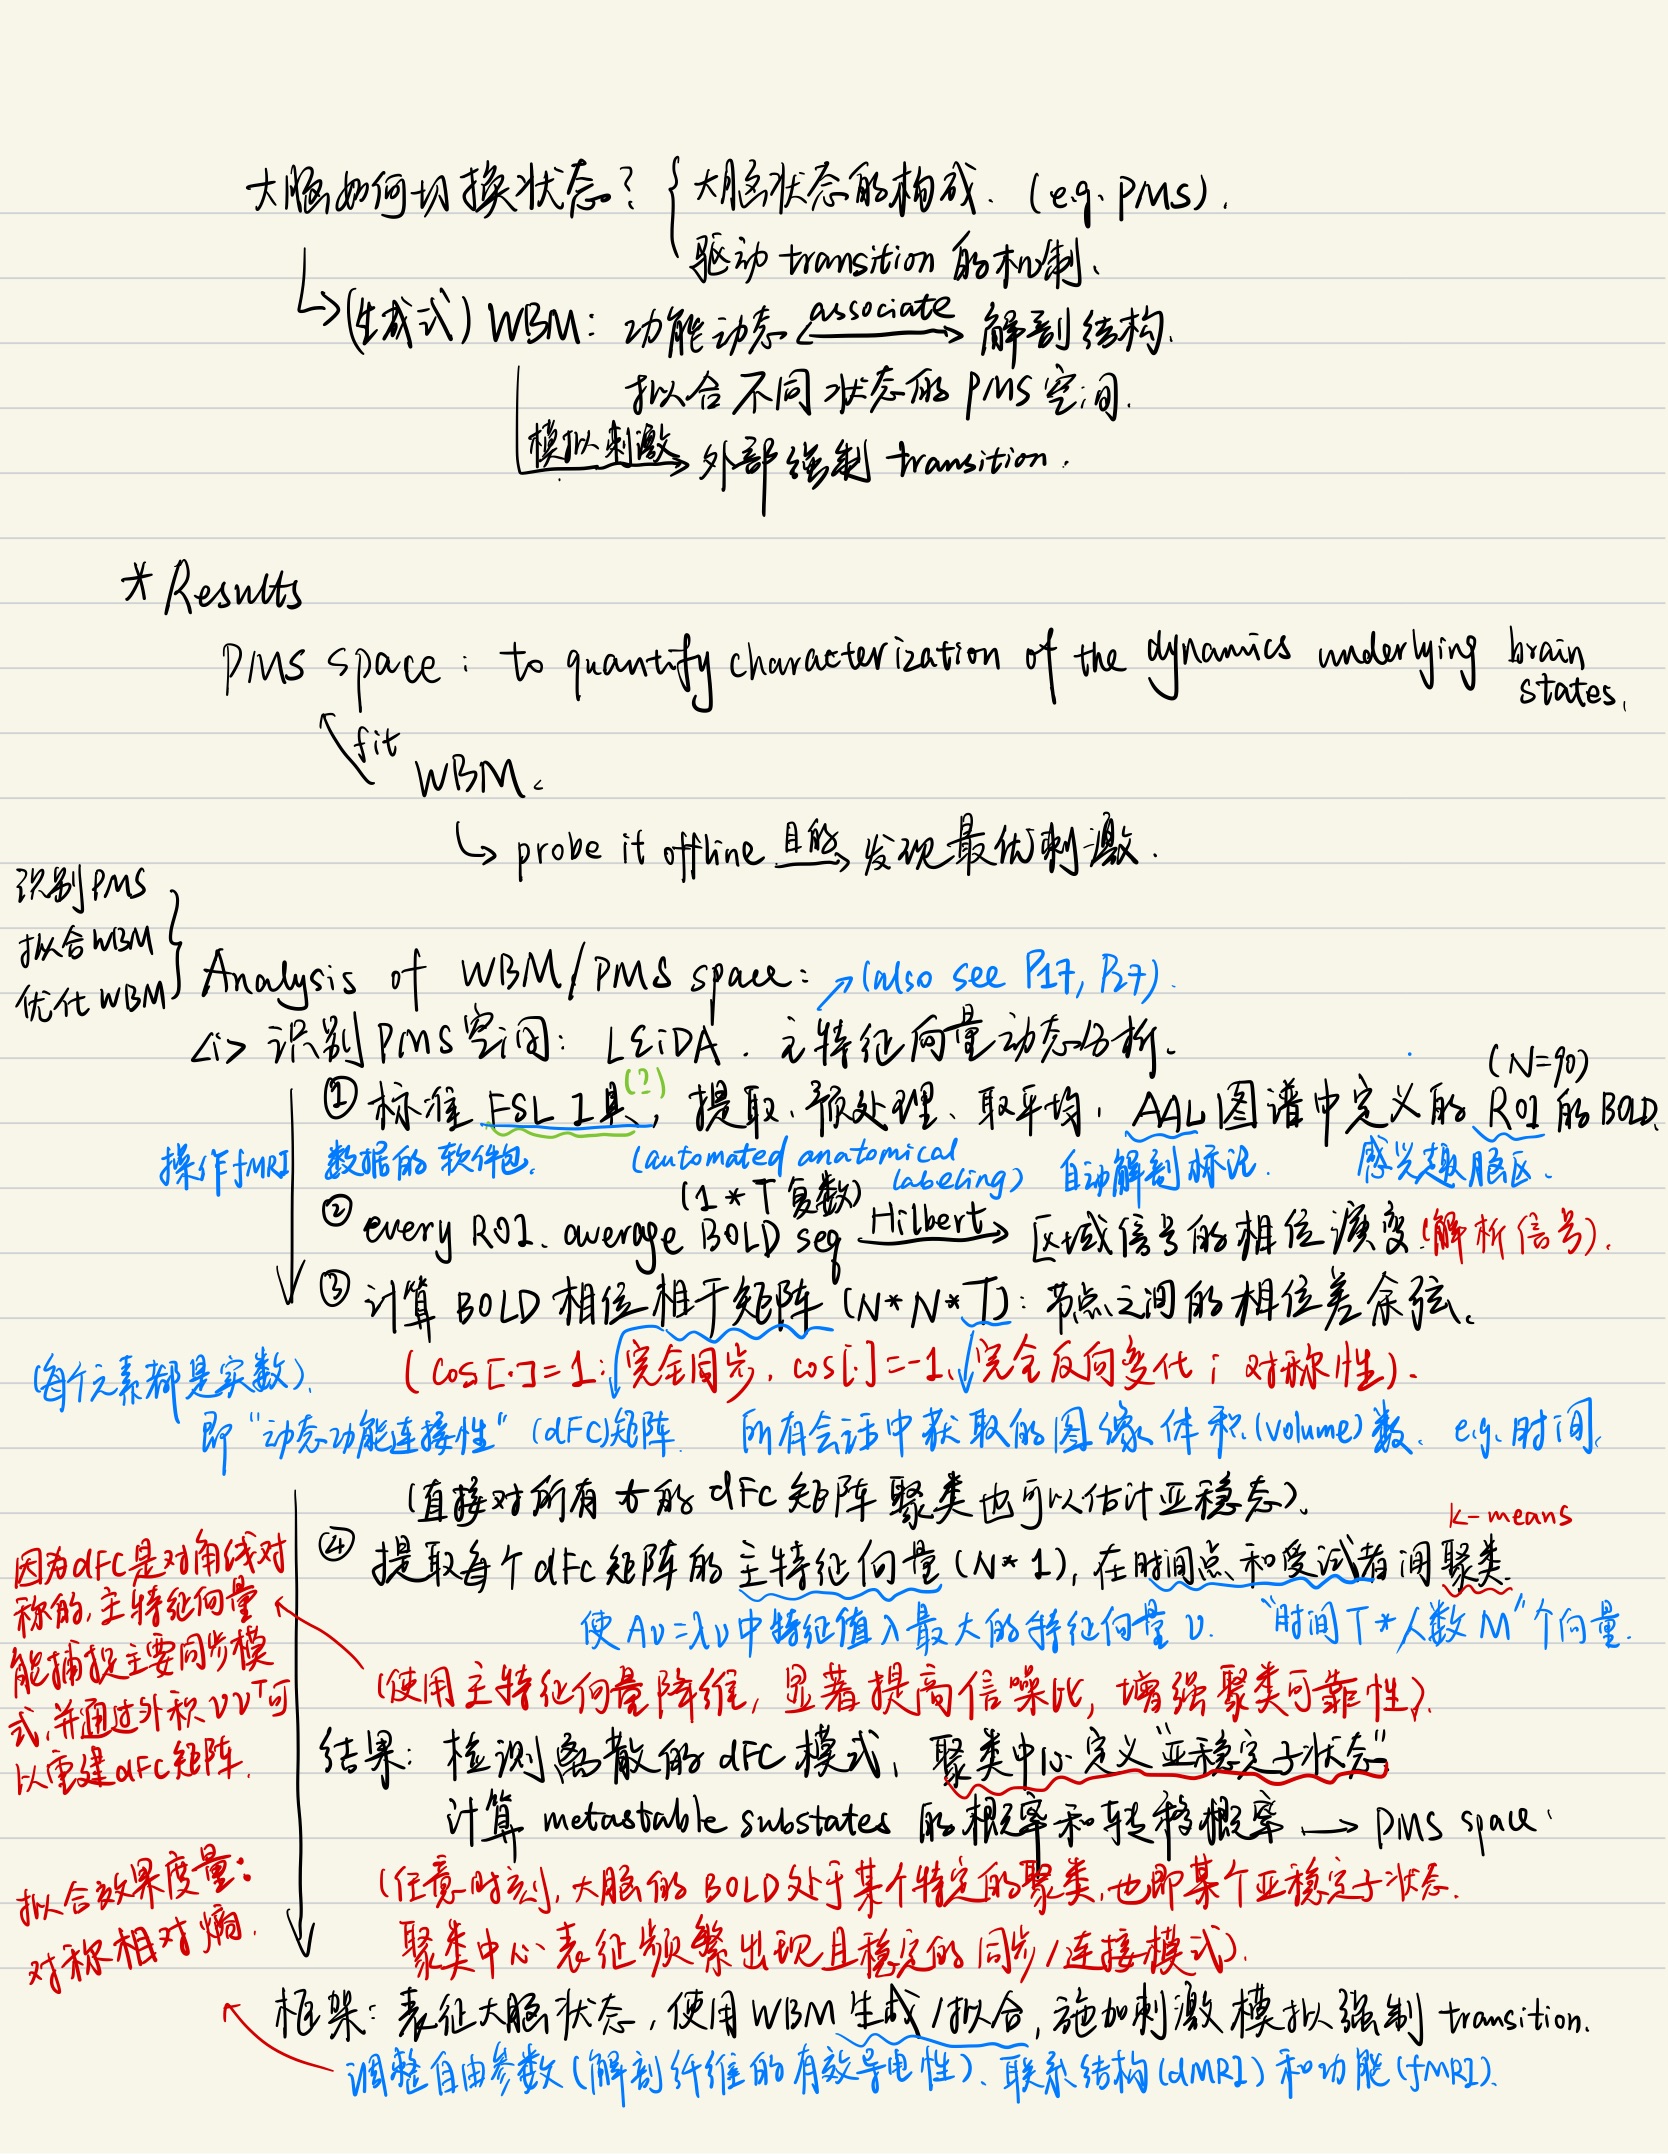 大脑如何切换状态? { 大脑状态的构成. (e.g. PMS).
驱动 transition 的机制.
(生成式) WBM: 功能动态 associate 解剖结构.
拟合不同状态的 PMS 空间.
模拟刺激 外部强制 transition.
* Results
PMS space: to quantify characterization of the dynamics underlying brain
states.
fit
WBM.
probe it offline 目的 发现最优刺激.
识别PMS
拟合WBM
优化WBM
Analysis of WBM/PMS space: (also see P17, P27).
<i> 识别PMS空间: LEiDA. 主特征向量动态分析.
(N=90)
① 标准 FSL 工具(?), 提取、预处理、取平均, AAL图谱中定义的 ROI 的 BOLD.
操作fMRI 数据的软件包. (automated anatomical
labeling) 自动解剖标记. 感兴趣脑区.
(1*T 复数)
② every ROI. average BOLD seq Hilbert 区域信号的相位演变.(解析信号).
③ 计算 BOLD 相位相干矩阵 (N*N*T): 节点之间的相位差余弦.
(每个元素都是实数). (cos[·]=1: 完全同步, cos[·]=-1, 完全反向变化; 对称性).
即"动态功能连接性"(dFC)矩阵. 所有会话中获取的图像体积(volume)数. e.g. 时间.
(直接对所有 t 的 dFC 矩阵聚类也可以估计亚稳态).
k-means
④ 提取每个 dFC 矩阵的主特征向量 (N*1), 在时间点和受试者间聚类.
使 Aν=λν中特征值λ最大的特征向量ν. "时间T*人数M"个向量.
因为dFC是对角线对
称的,主特征向量
能捕捉主要同步模
式,并通过外积ννᵀ可
以重建dFC矩阵.
(使用主特征向量降维, 显著提高信噪比, 增强聚类可靠性).
结果: 检测离散的 dFC 模式, 聚类中心定义"亚稳定子状态"
计算 metastable substates 的概率和转移概率 → PMS space.
(任意时刻, 大脑的 BOLD 处于某个特定的聚类, 也即某个亚稳定子状态.
聚类中心表征频繁出现且稳定的同步/连接模式).
拟合效果度量:
对称相对熵.
框架: 表征大脑状态, 使用 WBM 生成/拟合, 施加刺激模拟强制 transition.
调整自由参数(解剖纤维的有效导电性)、联系结构(dMRI)和功能(fMRI).